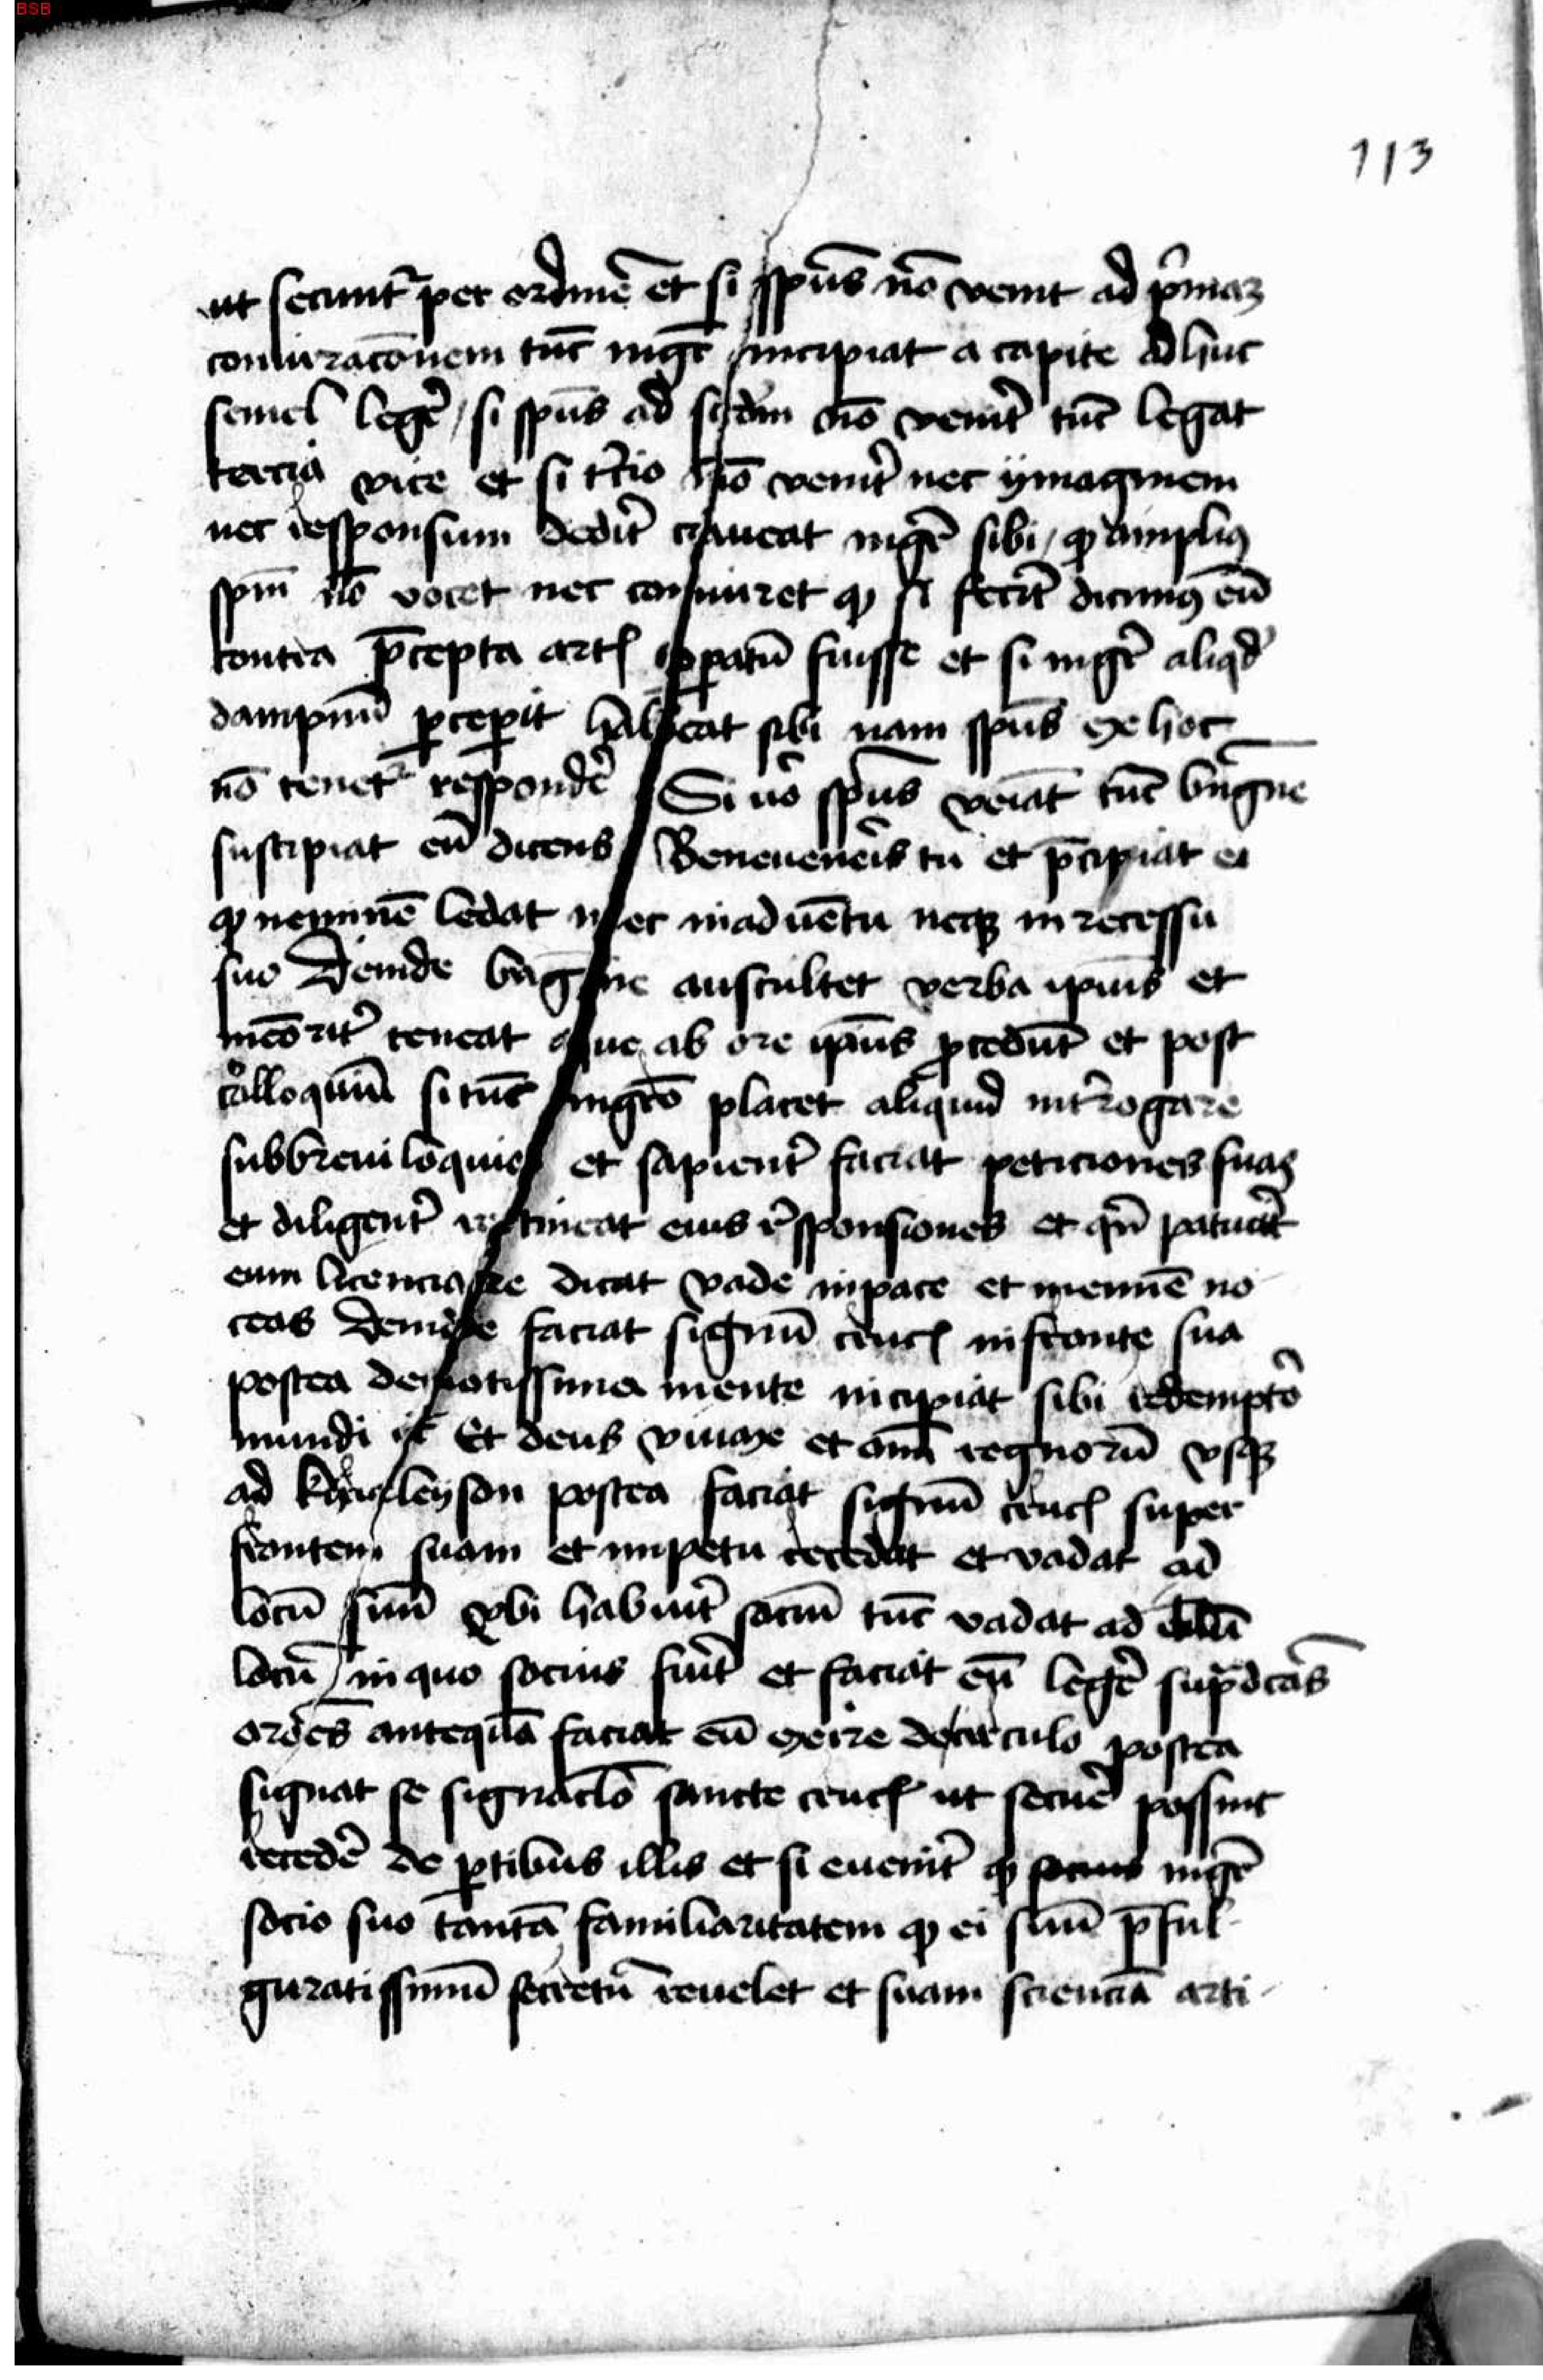 BSB
113
ut secunt̃ per ordinẽ et si spũs nõ venit ad p̃maz
coniuracõnem tũc mgr̃ incipiat a capite adhuc
semel legẽ / si spũs ad scdm nõ venit̃ tũc legat
tercia vice et si tcio nõ venit̃ nec ymaginem
nec responsum dedit̃ caueat mgr̃ sibi / ꝙ ampliꝰ
spm̃ nõ vocet nec coniuret ꝙ si fecit̃ dicimꝰ eũ
contra p̃cepta artꝭ opatũ fuisse et si mgr̃ aliqd̃
dampnũ ꝑceꝑit habeat sibi nam spũs ex hoc
nõ tenet̃ respondẽ Si ṽo spũs veiat tũc bnĩgne
suscipiat eũ dicens / Beneuenẽis tu et p̃cipiat ei
ꝙ neminẽ ledat nec in aduẽtu neqꝫ in recessu
suo Deinde bnĩgne auscultet verba ipĩus et
mẽorit̃ teneat que ab ore ipĩus ꝓcedũt et post
colloquiũ si tũc mgrõ placet aliquid int̃rogare
sub breuiloquio et sapient̃ faciat peticiones suas
et diligent̃ retineat eius r̃sponsiones et qñ
eum licenciare dicat vade in pace et neminẽ no
ceas Deinde faciat signũ crucꝭ in fronte sua
postea deuotissima mente incipiat sibi redemptõ
mundi ꝛc̃ Et deus viuax et om̃ regnorũ vsqꝫ
ad kyrieleyson postea faciat signũ crucꝭ super
frontem suam et impetu recedat et vadat ad
locũ suũ vbi habuit̃ sociũ tũc vadat ad illũ
locũ / in quo socius fuit̃ et faciat eũ legẽ sup̃dcãs
ordẽs antequã faciat eũ exire de circulo postea
signat se signaclõ sancte crucꝭ ut secuẽ possint
recedẽ de ꝑtibus illis et si euenit̃ ꝙ socius mgr̃
socio suo tantã familiaritatem ꝙ ei suũ p̃ful-
guratissimũ secretũ reuelet et suam scienciã arti-